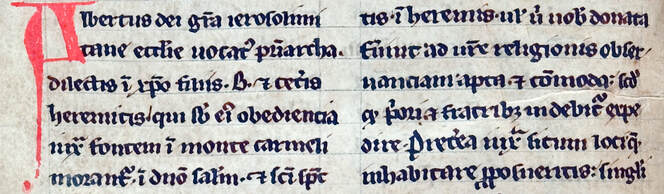 Albertus dei gr̄a ierosolimi
tane eccl̄ie uocatꝰ pr̄iarcha.
dilectis ī xp̄o filiis. B. ⁊ cet̄is
heremitis / qui sb̄ eiꝰ obediencia
iux̄ fontem ī monte carmeli
morant̄. ī dn̄o salm̄. ⁊ sc̄i sp̄c
tis. ī heremis. ul' ū uob̄ donata
fūint ad ur̄e religionis obser
uanciam apta ⁊ cōmoda: scd'
qđ p̄ori a fratribꝫ uidebit᷒ expe
dire. Pret̄ea iux̄ situm loci q̄
inhabitare ꝓposueritis: singli